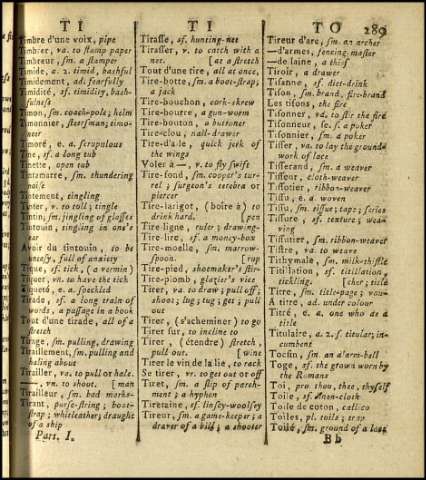 TI
TI
TO
289
Timbre d'une voix, pipe
Timbrer, va. to stamp paper
Timbreur, sm. a stamper
Timide, a. 2. timid, bashful
Timidement, ad. fearfully
Timidité, sf. timidity, bash-
fulness
Timon, sm. coach-pole; helm
Timonier, steersman; timo-
neer
Timoré, e. a. scrupulous
Tine, sf. a long tub
Tinette, open tub
Tintamarre, sm. thundering
noise
Tintement, tingling
Tinter, va. to toll; tingle
Tintin, sm. jingling of glasses
Tintouin, tingling in one's
ear
Avoir du tintouin, to be
uneasy, full of anxiety
Tique, sf. tick, (a vermin)
Tiquer, vn. to have the tick
Tiqueté, e. a. speckled
Tirade, sf. a long train of
words, a passage in a book
Tout d'une tirade, all of a
stretch
Tirage, sm. pulling, drawing
Tiraillement, sm. pulling and
haling about
Tirailler, va. to pull or hale.
—, vn. to shoot. [man
Tirailleur, sm. bad marks-
Tirant, purse-string; boot-
strap; whitleather; draught
of a ship
Part. I.
Tirasse, sf. hunting-net
Tirasser, v. to catch with a
net. [at a stretch
Tout d'une tire, all at once,
Tire-botte, sm. a boot-strap;
a jack
Tire-bouchon, cork-screw
Tire-bourre, a gun-worm
Tire-bouton, a buttoner
Tire-clou, nail-drawer
Tire-d'aile, quick jerk of
the wings
Voler à —, v. to fly swift
Tire-fond, sm. cooper's tur-
rel; surgeon's terebra or
piercer
Tire-larigot, (boire à) to
drink hard. [pen
Tire ligne, ruler; drawing-
Tire-lire, sf. a money-box
Tire-moelle, sm. marrow-
spoon. [rup
Tire-pied, shoemaker's stir-
Tire-plomb, glazier's vice
Tirer, va. to draw; pull off;
shoot; tug; tug; get; pull
out
Tirer, (s'acheminer) to go
Tirer sur, to incline to
Tirer, (étendre) stretch,
pull out. [wine
Tirer le vin de la lie, to rack
Se tirer, vr. to get out or off
Tiret, sm. a slip of parch-
ment; a hyphen
Tiretaine, sf. linsey-woolsey
Tireur, sm. a game-keeper; a
drawer of a bill; a shooter
Tireur d'arc, sm. an archer
—d'armes, fencing-master
—de laine, a thief
Tiroir, a drawer
Tisanne, sf. diet-drink
Tison, sm. brand, fire-brand
Les tisons, the fire
Tisonner, va. to stir the fire
Tisonneur, se. s. a poker
Tisonnier, sm. a poker
Tisser, va. to lay the ground-
work of lace
Tisserand, sm. a weaver
Tisseur, cloth-weaver
Tissotier, ribbon-weaver
Tissu, e. a. woven
Tissu, sm. tissue; tape; series
Tissure, sf. texture; wea-
ving
Tissutier, sm. ribbon-weaver
Tistre, va. to weave
Tithymale, sm. milk-thistle
Titillation, sf. titillation,
tickling. [cher; title
Titre, sm. title-page; vou-
A titre, ad. under colour
Titré, e. a. one who as a
title
Titulaire, a. 2. s. titular; in-
cumbent
Tocsin, sm. an alarm-bell
Toge, sf. the gown worn by
the Romans
Toi, pro. thou, thee, thyself
Toile, sf. linen-cloth
Toile de coton, callico
Toiles, pl. toils; trap
Toilé, sm. ground of a lace
Bb